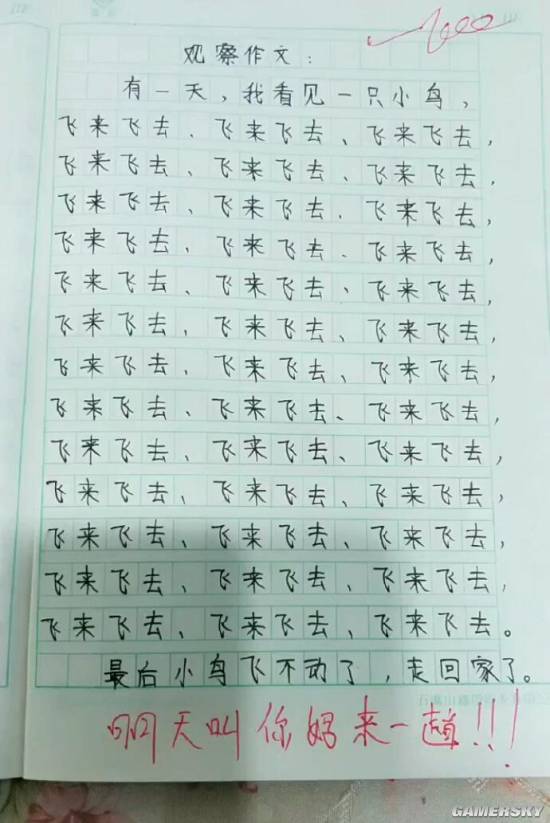 观察作文:
有一天,我看见一只小鸟,
飞来飞去、飞来飞去、飞来飞去,
飞来飞去、飞来飞去、飞来飞去,
飞来飞去、飞来飞去、飞来飞去,
飞来飞去、飞来飞去、飞来飞去,
飞来飞去、飞来飞去、飞来飞去,
飞来飞去、飞来飞去、飞来飞去,
飞来飞去、飞来飞去、飞来飞去,
飞来飞去、飞来飞去、飞来飞去,
飞来飞去、飞来飞去、飞来飞去,
飞来飞去、飞来飞去、飞来飞去,
飞来飞去、飞来飞去、飞来飞去,
飞来飞去、飞来飞去、飞来飞去,
飞来飞去、飞来飞去、飞来飞去。
最后小鸟飞不动了,走回家了。
明天叫你妈来一趟!!!
GAMERSKY